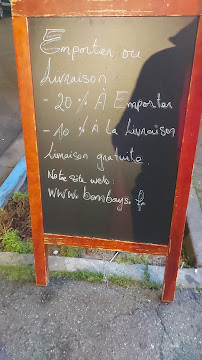 Emporter ou
Livraison
- 20 % À Emporter
- 10 % À la Livraison
Livraison gratuite.
Notre site web:
www.bombays.fr